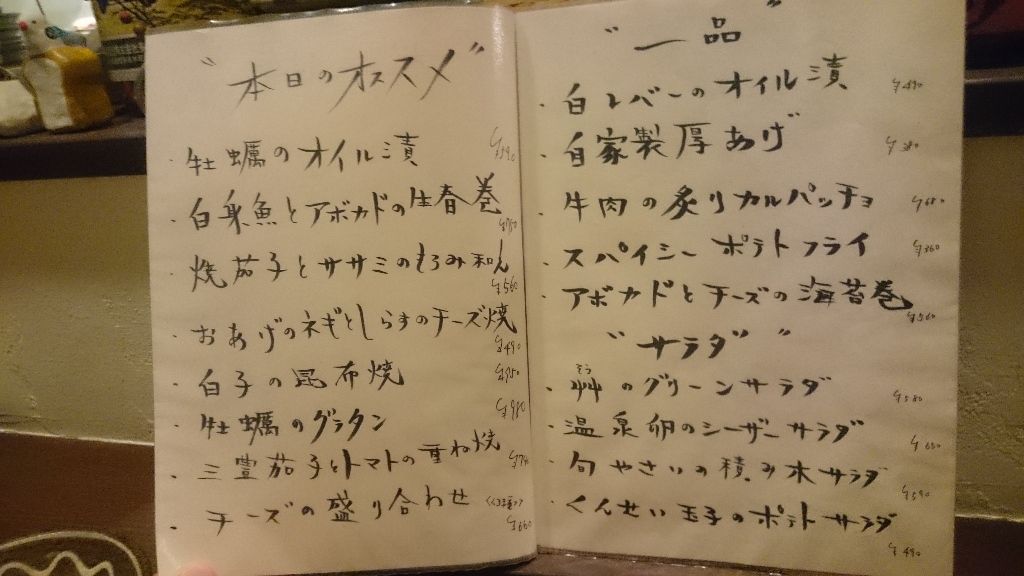 "本日のオススメ"
・牡蠣のオイル漬
・白身魚とアボカドの生春巻
・焼茄子とササミのもろみ和え ¥560
・おあげのネギとしらすのチーズ焼 ¥490
・白子の昆布焼
・牡蠣のグラタン
・三豊茄子とトマトの重ね焼
・チーズの盛り合わせ ¥660
"一品"
・白レバーのオイル漬 ¥490
・自家製厚あげ ¥380
・牛肉の炙りカルパッチョ ¥680
・スパイシーポテトフライ ¥360
・アボカドとチーズの海苔巻 ¥560
"サラダ"
そう
・艸のグリーンサラダ ¥580
・温泉卵のシーザーサラダ
・旬やさいの積み木サラダ ¥590
・くんせい玉子のポテトサラダ ¥490